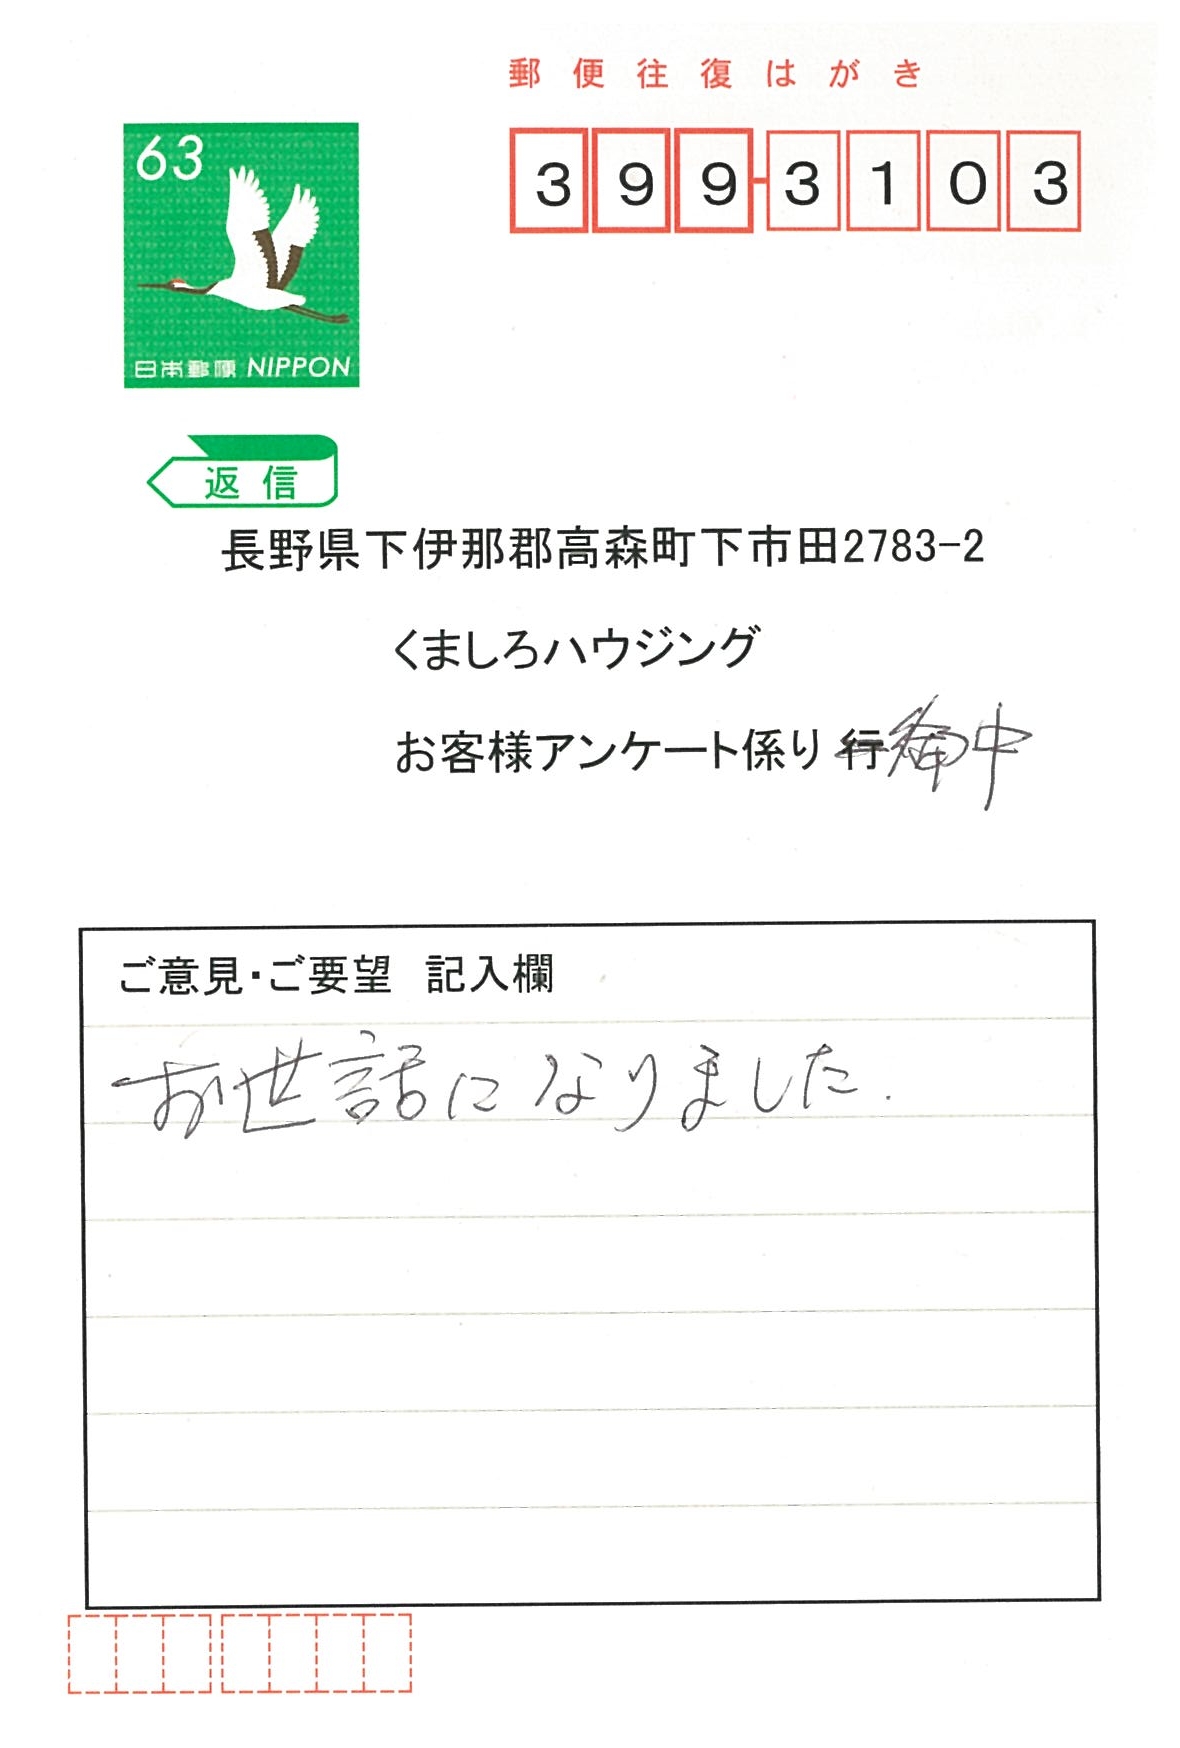 郵便往復はがき
63
399-3103
日本郵便 NIPPON
返信
長野県下伊那郡高森町下市田2783-2
くましろハウジング
お客様アンケート係り 行 御中
ご意見・ご要望 記入欄
お世話になりました.